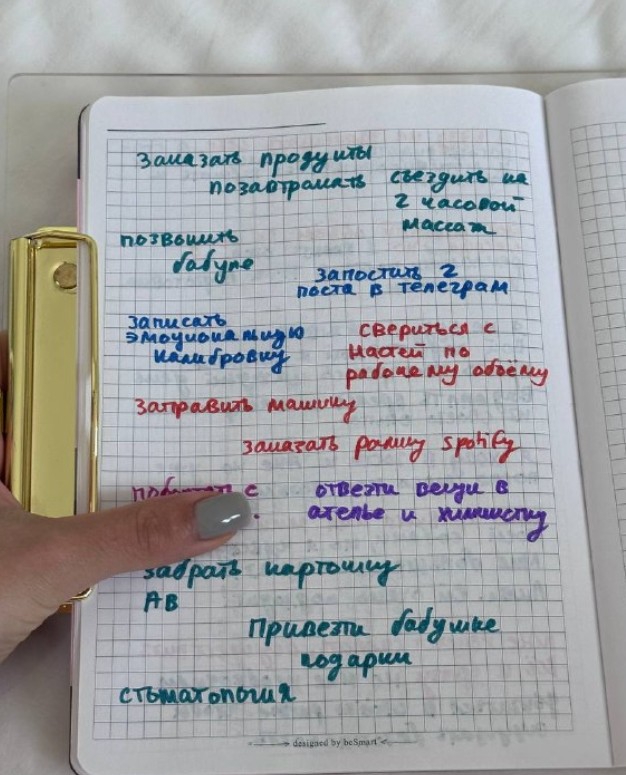 Заказать продукты
позавтракать
съездить на
2 часовой
массаж
позвонить
бабуле
запостить 2
поста в телеграм
записать
эмоциональную
калибровку
свериться с
Настей по
рабочему объёму
заправить машину
заказать рамку spotify
с
отвезти вещи в
ателье и химчистку
забрать карточку
АВ
Привезти бабушке
подарки
стоматология
designed by beSmart